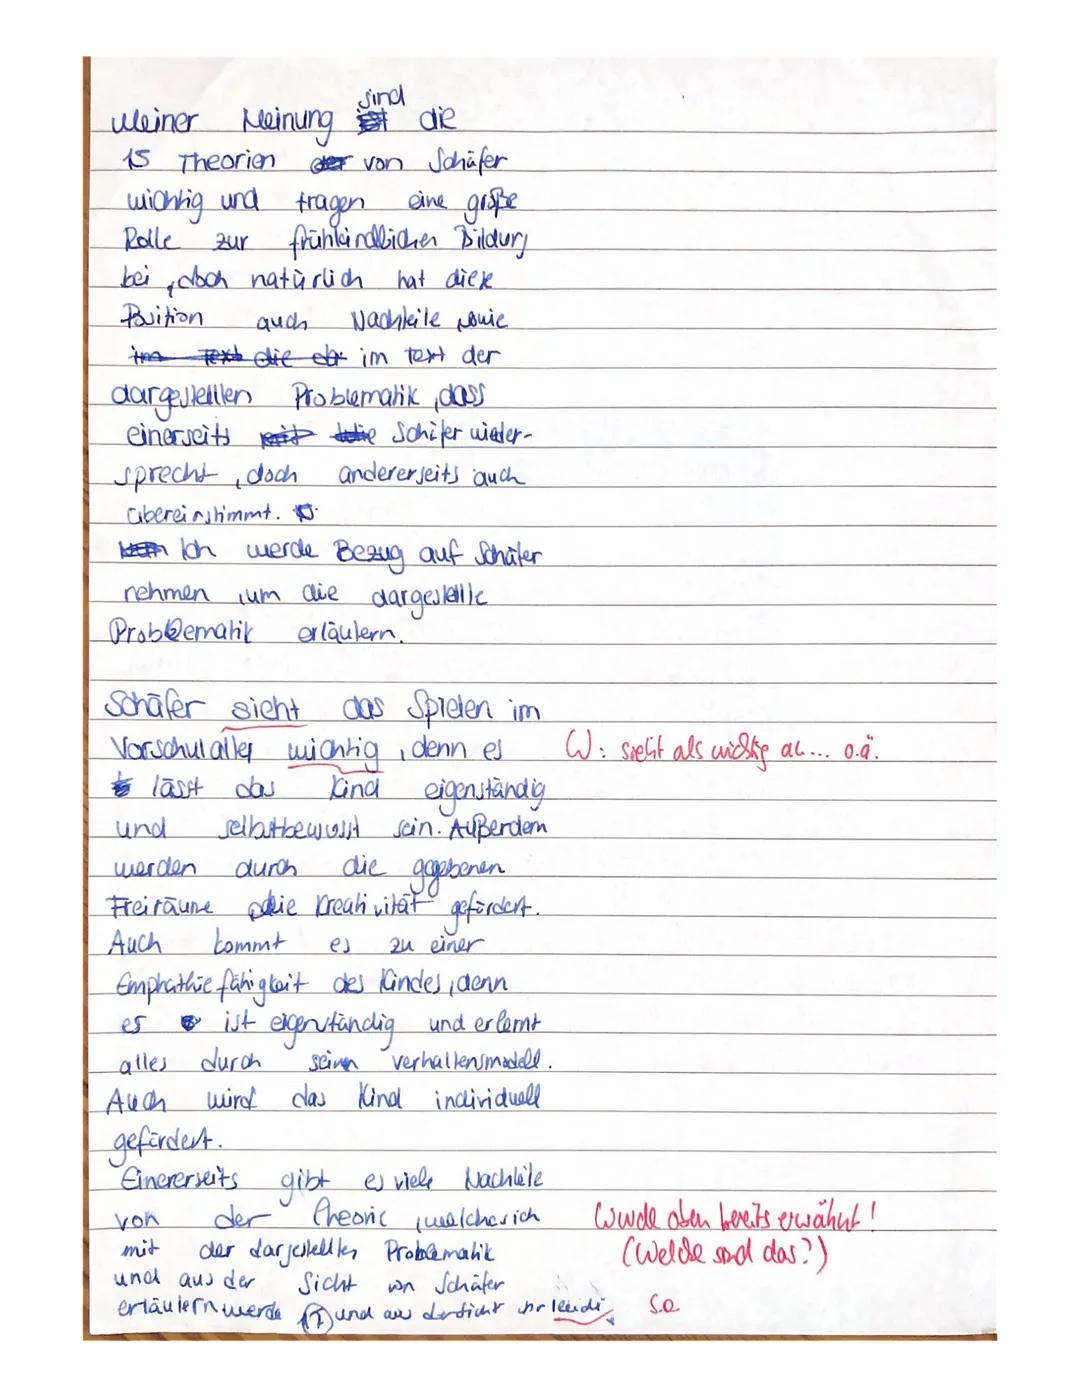 Meiner Meinung sind die
15 Theorien von Schäfer
wichtig und tragen eine große
Rolle zur frühkindlichen Bildung
bei, doch natürlich hat diese
Position auch Nachteile sowie
im text der
dargestellten Problematik, dass
einerseits Schäfer wieder-
sprecht, doch andererseits auch
übereinstimmt.
Ich werde Bezug auf Schäfer
nehmen, um die dargestellte
Problematik erläutern.
Schäfer sieht das Spielen im
Vorschulalter wichtig, denn es W: sieht als wichtig an... o.ä.
lässt das Kind eigenständig
und selbstbewusst sein. Außerdem
werden durch die gegebenen
Freiräume die Kreativität gefördert.
Auch kommt es zu einer
Emphathiefähigkeit des Kindes, denn
es ist eigenständig und erlernt
alles durch seinen verhaltensmodell.
Auch wird das Kind individuell
gefördert.
Einererseits gibt es viele Nachteile
von der Theorie, welches ich Wurde oben bereits erwähnt!
mit der dargestellten Problematik (Welche sind das?)
und aus der Sicht von Schäfer
erläutern werde und aus der Sicht s.o.